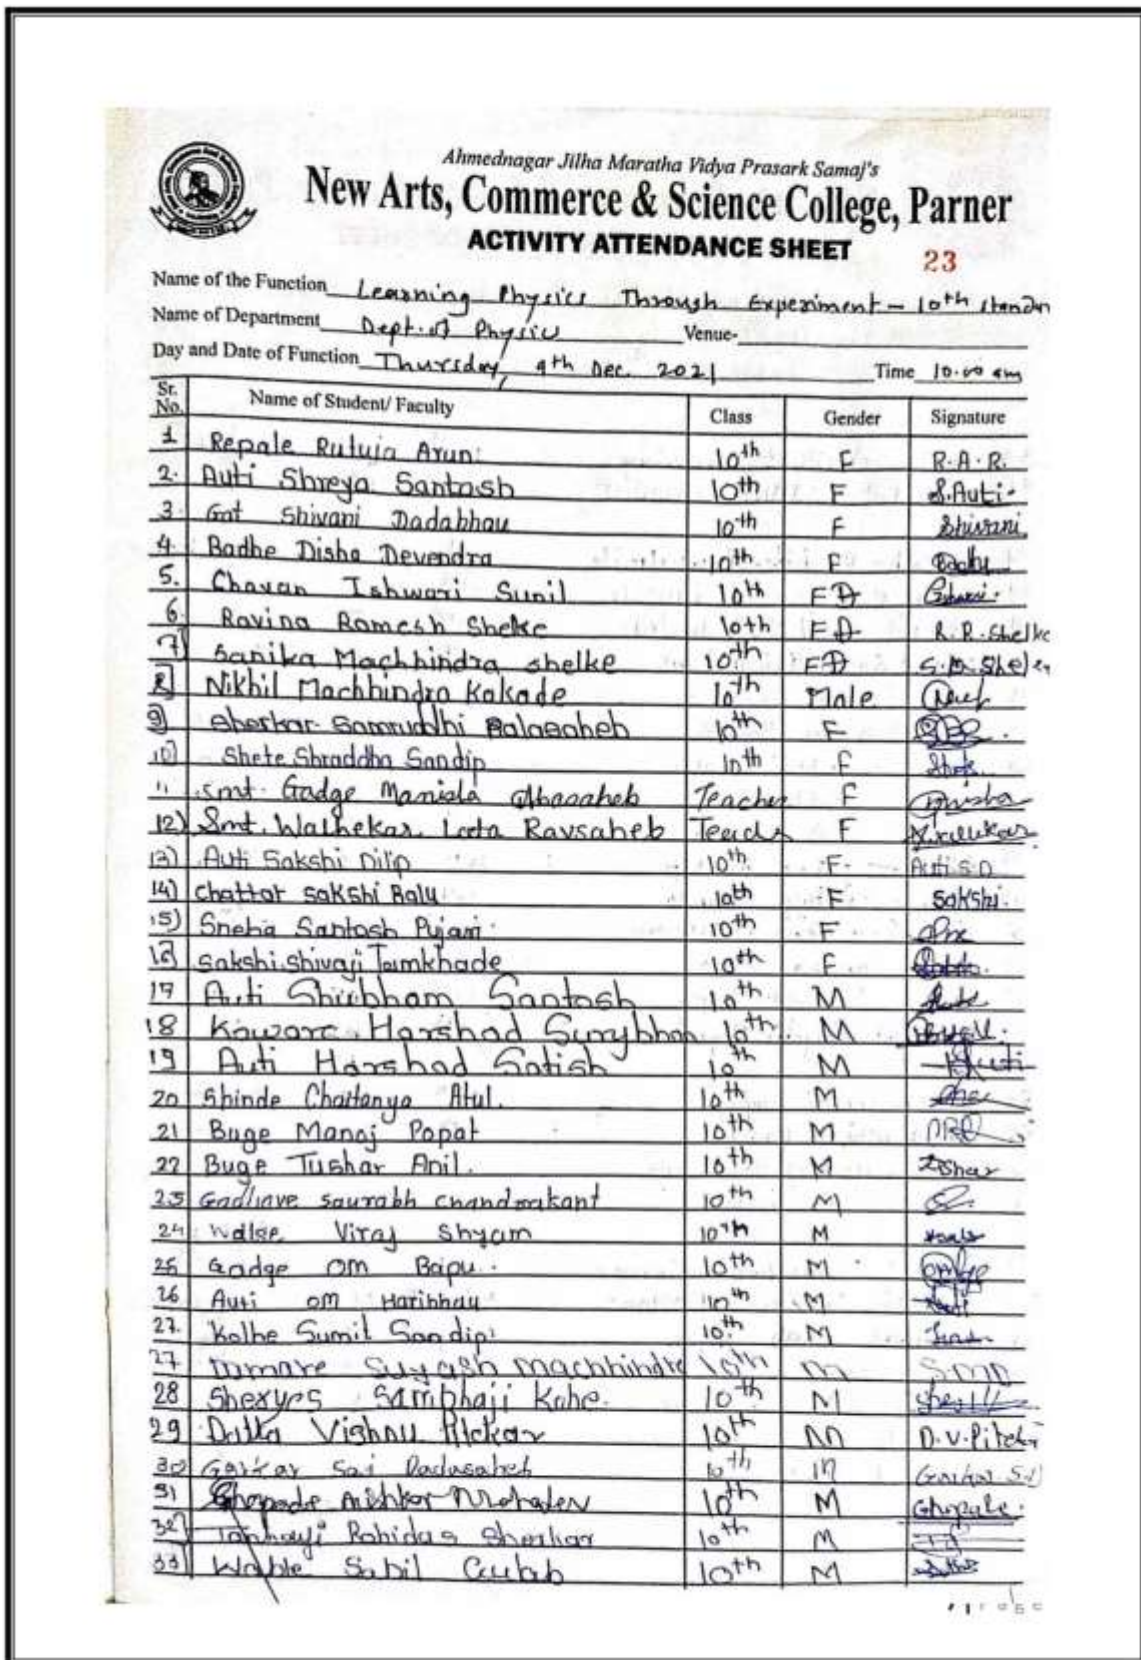 Ahmednagar Jilha Maratha Vidya Prasark Samaj's
New Arts, Commerce & Science College, Parner
ACTIVITY ATTENDANCE SHEET
23
Name of the Function Learning Physics Through Experiment - 10th standar
Name of Department Dept. of Physics Venue-
Day and Date of Function Thursday, 9th Dec. 2021 Time 10.00 am
Sr. No. Name of Student/ Faculty Class Gender Signature
1 Repale Rutuja Arun 10th F R.A.R.
2. Auti Shreya Santosh 10th F S.Auti
3. Gat Shivani Dadabhau 10th F Shivani
4. Badhe Disha Devendra 10th F
5. Chavan Ishwari Sunil 10th F
6. Ravina Ramesh Shelke 10th F R.R.Shelke
7] Sanika Machhindra shelke 10th F
8] Nikhil Machhindra Kakade 10th Male
9] Sherkar Samruddhi Balasaheb 10th F
10] Shete Shraddha Sandip 10th F
11 Smt. Gadge Manisha Teacher F
12) Smt. Walhekar Leeta Ravsaheb F
13) Auti Sakshi Dilip 10th F Auti S.D
14) Chattar Sakshi Balu 10th F Sakshi
15) Sneha Santosh Pujari 10th F
16] Sakshi Shivaji Tamkhade 10th F
17 Auti Shubham Santosh 10th M
18 Kaware Harshad 10th M
19 Auti Harshad Satish 10th M
20 Shinde Chaitanya Atul. 10th M
21 Buge Manoj Popat 10th M
22 Buge Tushar Anil. 10th M
23 Gadhave saurabh chandrakant 10th M
24 Walse Viraj Shyam 10th M
25 Gadge om Bapu 10th M
26 Auti om Haribhau 10th M
27. Kolhe Sumit Sandip 10th M
27 Suyash machhindra 10th M
28 Sambhaji 10th M
29 Datta Vishnu 10th M
30 Garkar Sai Dadasaheb 10th M
31 10th M
32] Tanhaji Rohidas Sherkar 10th M
33] Wable Sahil 10th M